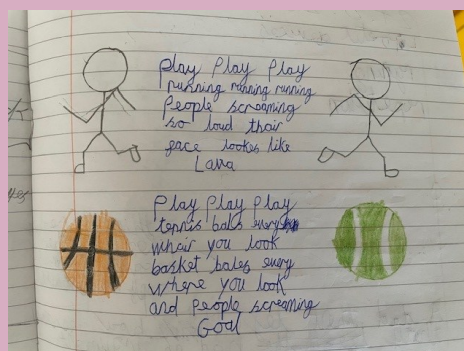 Play Play Play
running running running
People screaming
so loud thair
face lookes like
Lava
Play Play Play
tennis bals every
whair you look
basket bales every
where you look
and people screaming
Goal